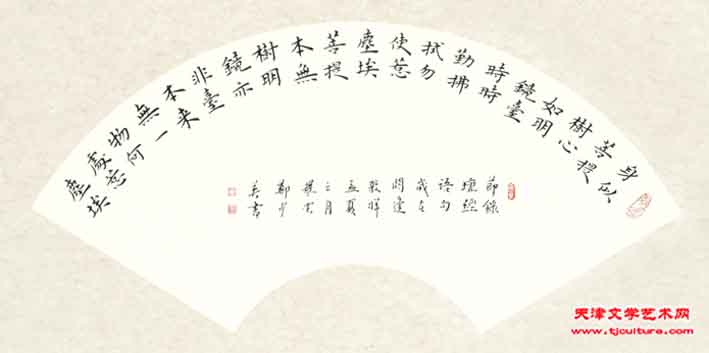 身似
菩提
樹心
如明
鏡臺
時時
勤拂
拭勿
使惹
塵埃
菩提
本無
樹明
鏡亦
非臺
本来
無一
物何
處惹
塵埃
節錄
壇經
語句
歲在
閼逢
敦牂
孟夏
之月
鄭少
英書
天津文学艺术网
www.tjculture.com